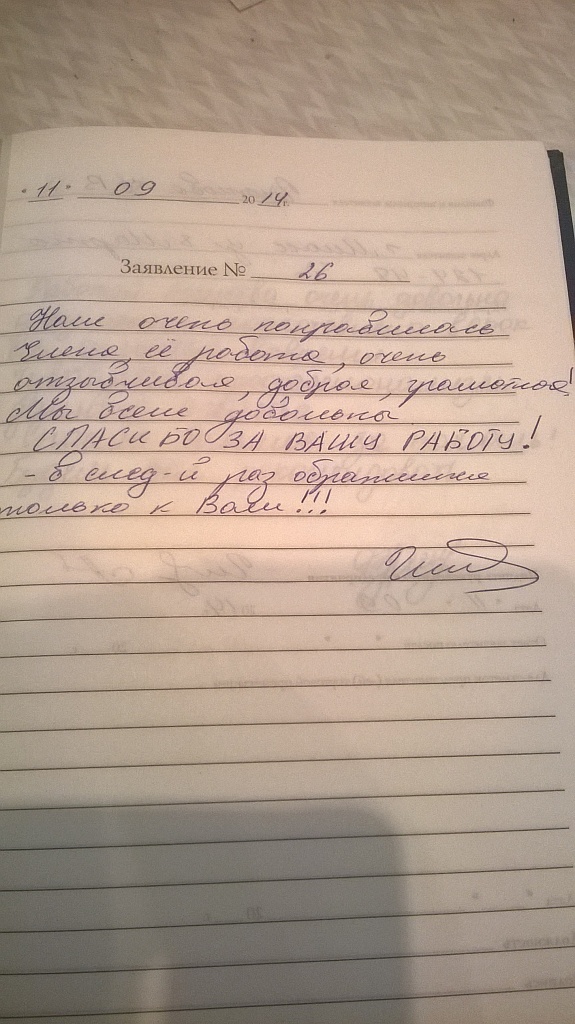 "11" 09 2014г.
Заявление № 26
Нам очень понравилась
Улена, её работа, очень
отзывчивая, добрая, грамотная!
Мы всем довольны
СПАСИБО ЗА ВАШУ РАБОТУ!
- в след-й раз обратимся
только к Вам!!!